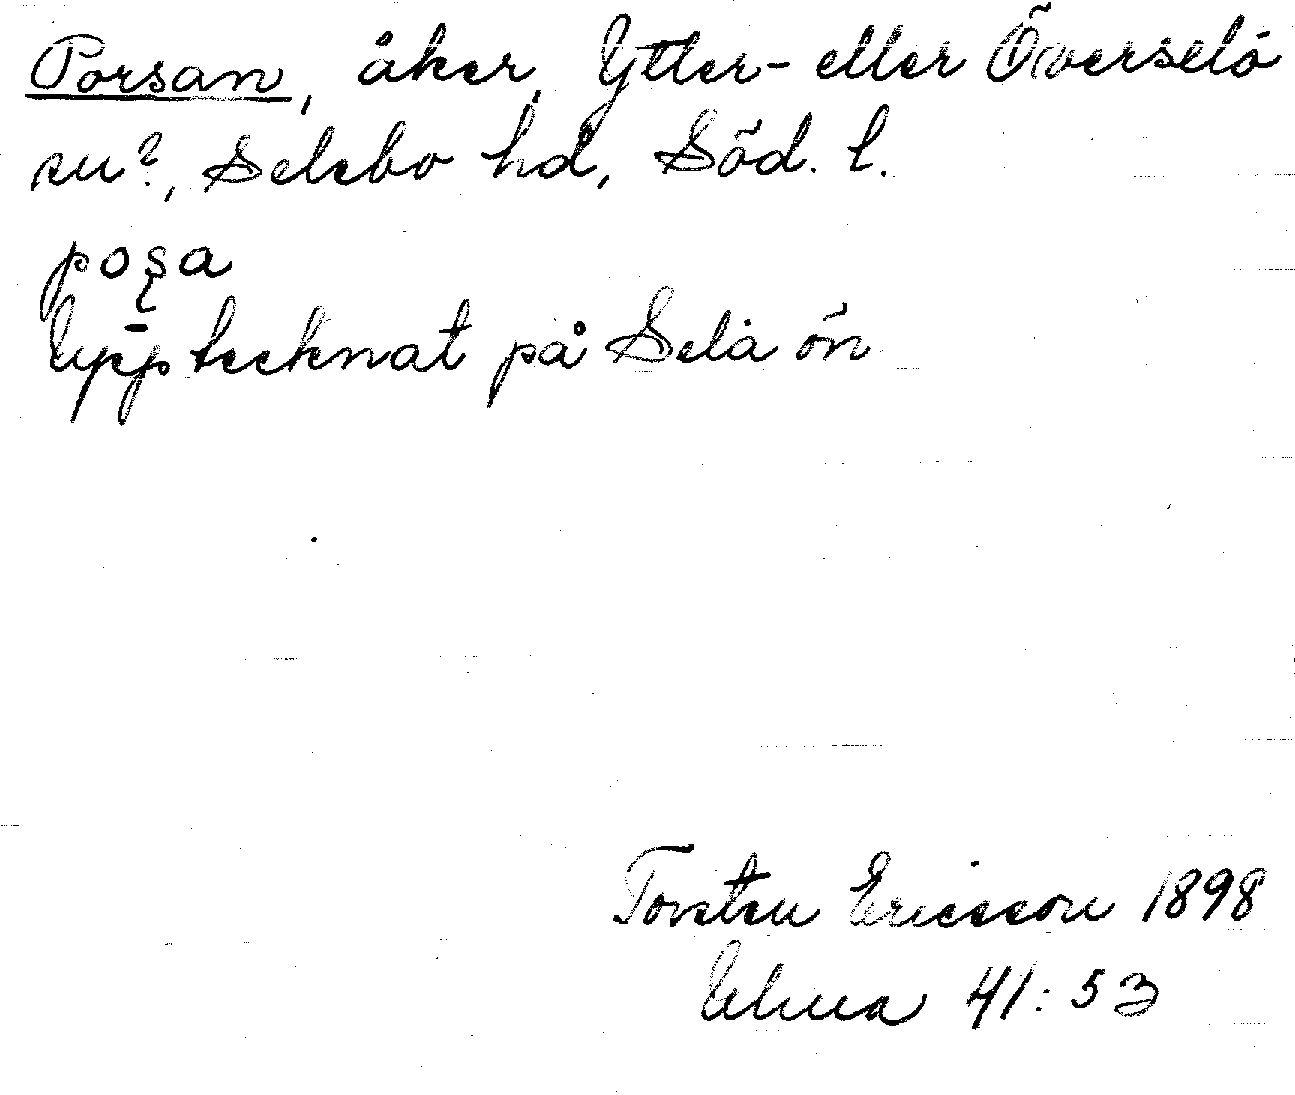 Porsan, åker, Ytter- eller Överselö
sn?, Selebo hd, Söd. l.
poʂa
Upptecknat på Selaön
Torsten Ericsson 1898
Ulma 41:53